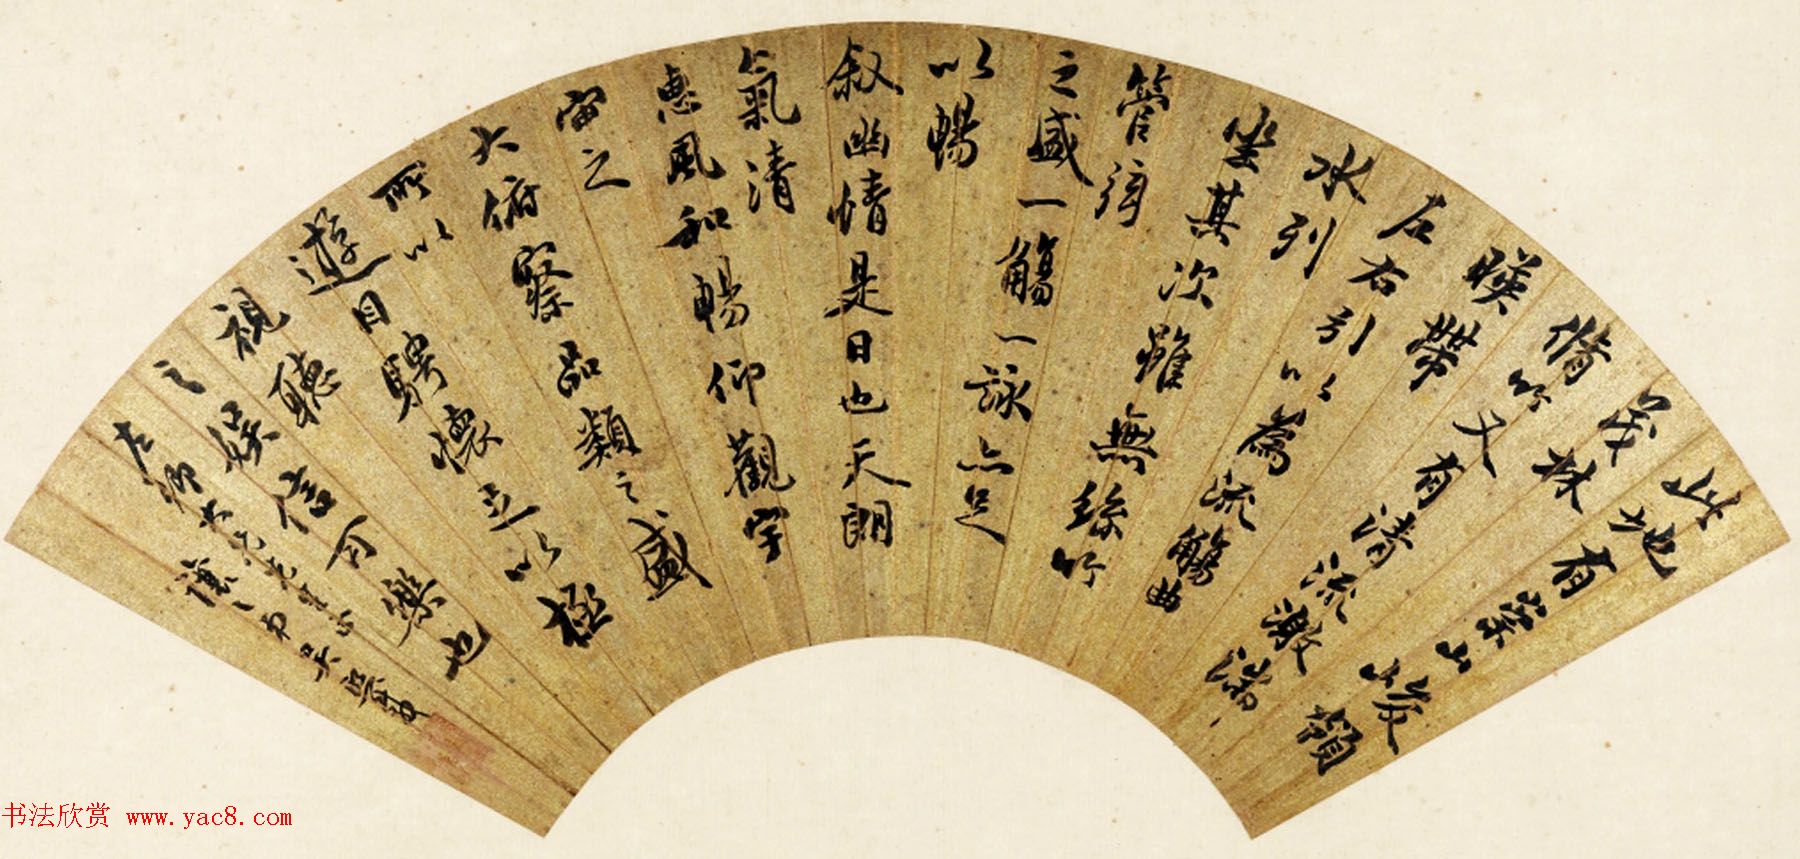 此地有崇山峻領
茂林
脩竹又有清流激湍
暎帶
左右引以為流觴曲
水列
坐其次雖無絲竹
管弦
之盛一觴一詠亦足
以暢
叙幽情是日也天朗
氣清
惠風和暢仰觀宇
宙之
大俯察品類之盛
所以
遊目騁懷足以極
視聽
之娛信可樂也
书法欣赏 www.yac8.com